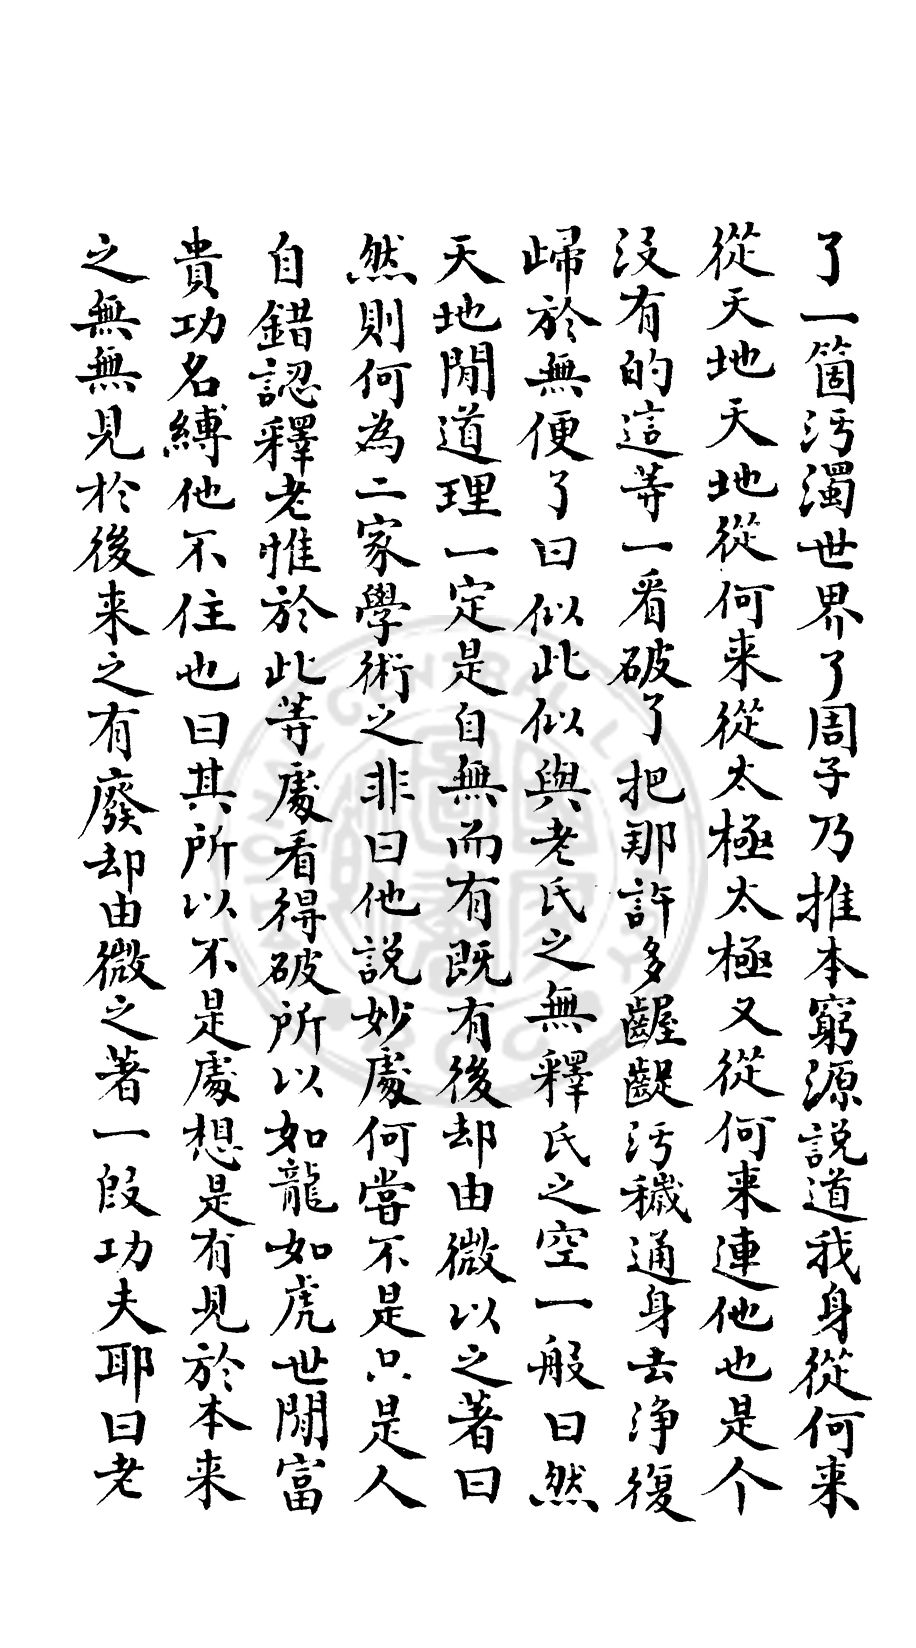 了一箇汚濁世界了周子乃推本窮源説道我身從何来
從天地天地從何来從太極太極又從何来連他也是个
没有的這等一看破了把那許多齷齪汚穢通身去浄復
歸於無便了曰似此似與老氏之無釋氏之空一般曰然
天地間道理一定是自無而有既有後却由微以之著曰
然則何為二家學術之非曰他説妙處何嘗不是只是人
自錯認釋老惟於此等處看得破所以如龍如虎世間富
貴功名縛他不住也曰其所以不是處想是有見於本来
之無無見於後来之有廢却由微之著一段功夫耶曰老
NATIONAL CENTRAL LIBRARY